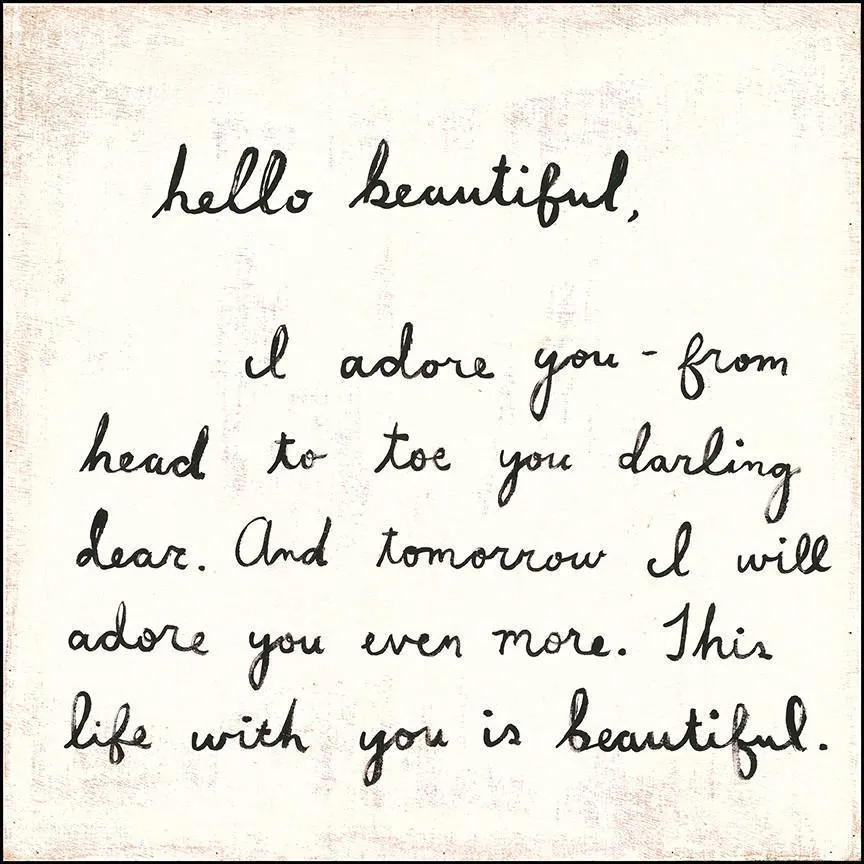 hello beautiful,
I adore you - from
head to toe you darling
dear. And tomorrow I will
adore you even more. This
life with you is beautiful.